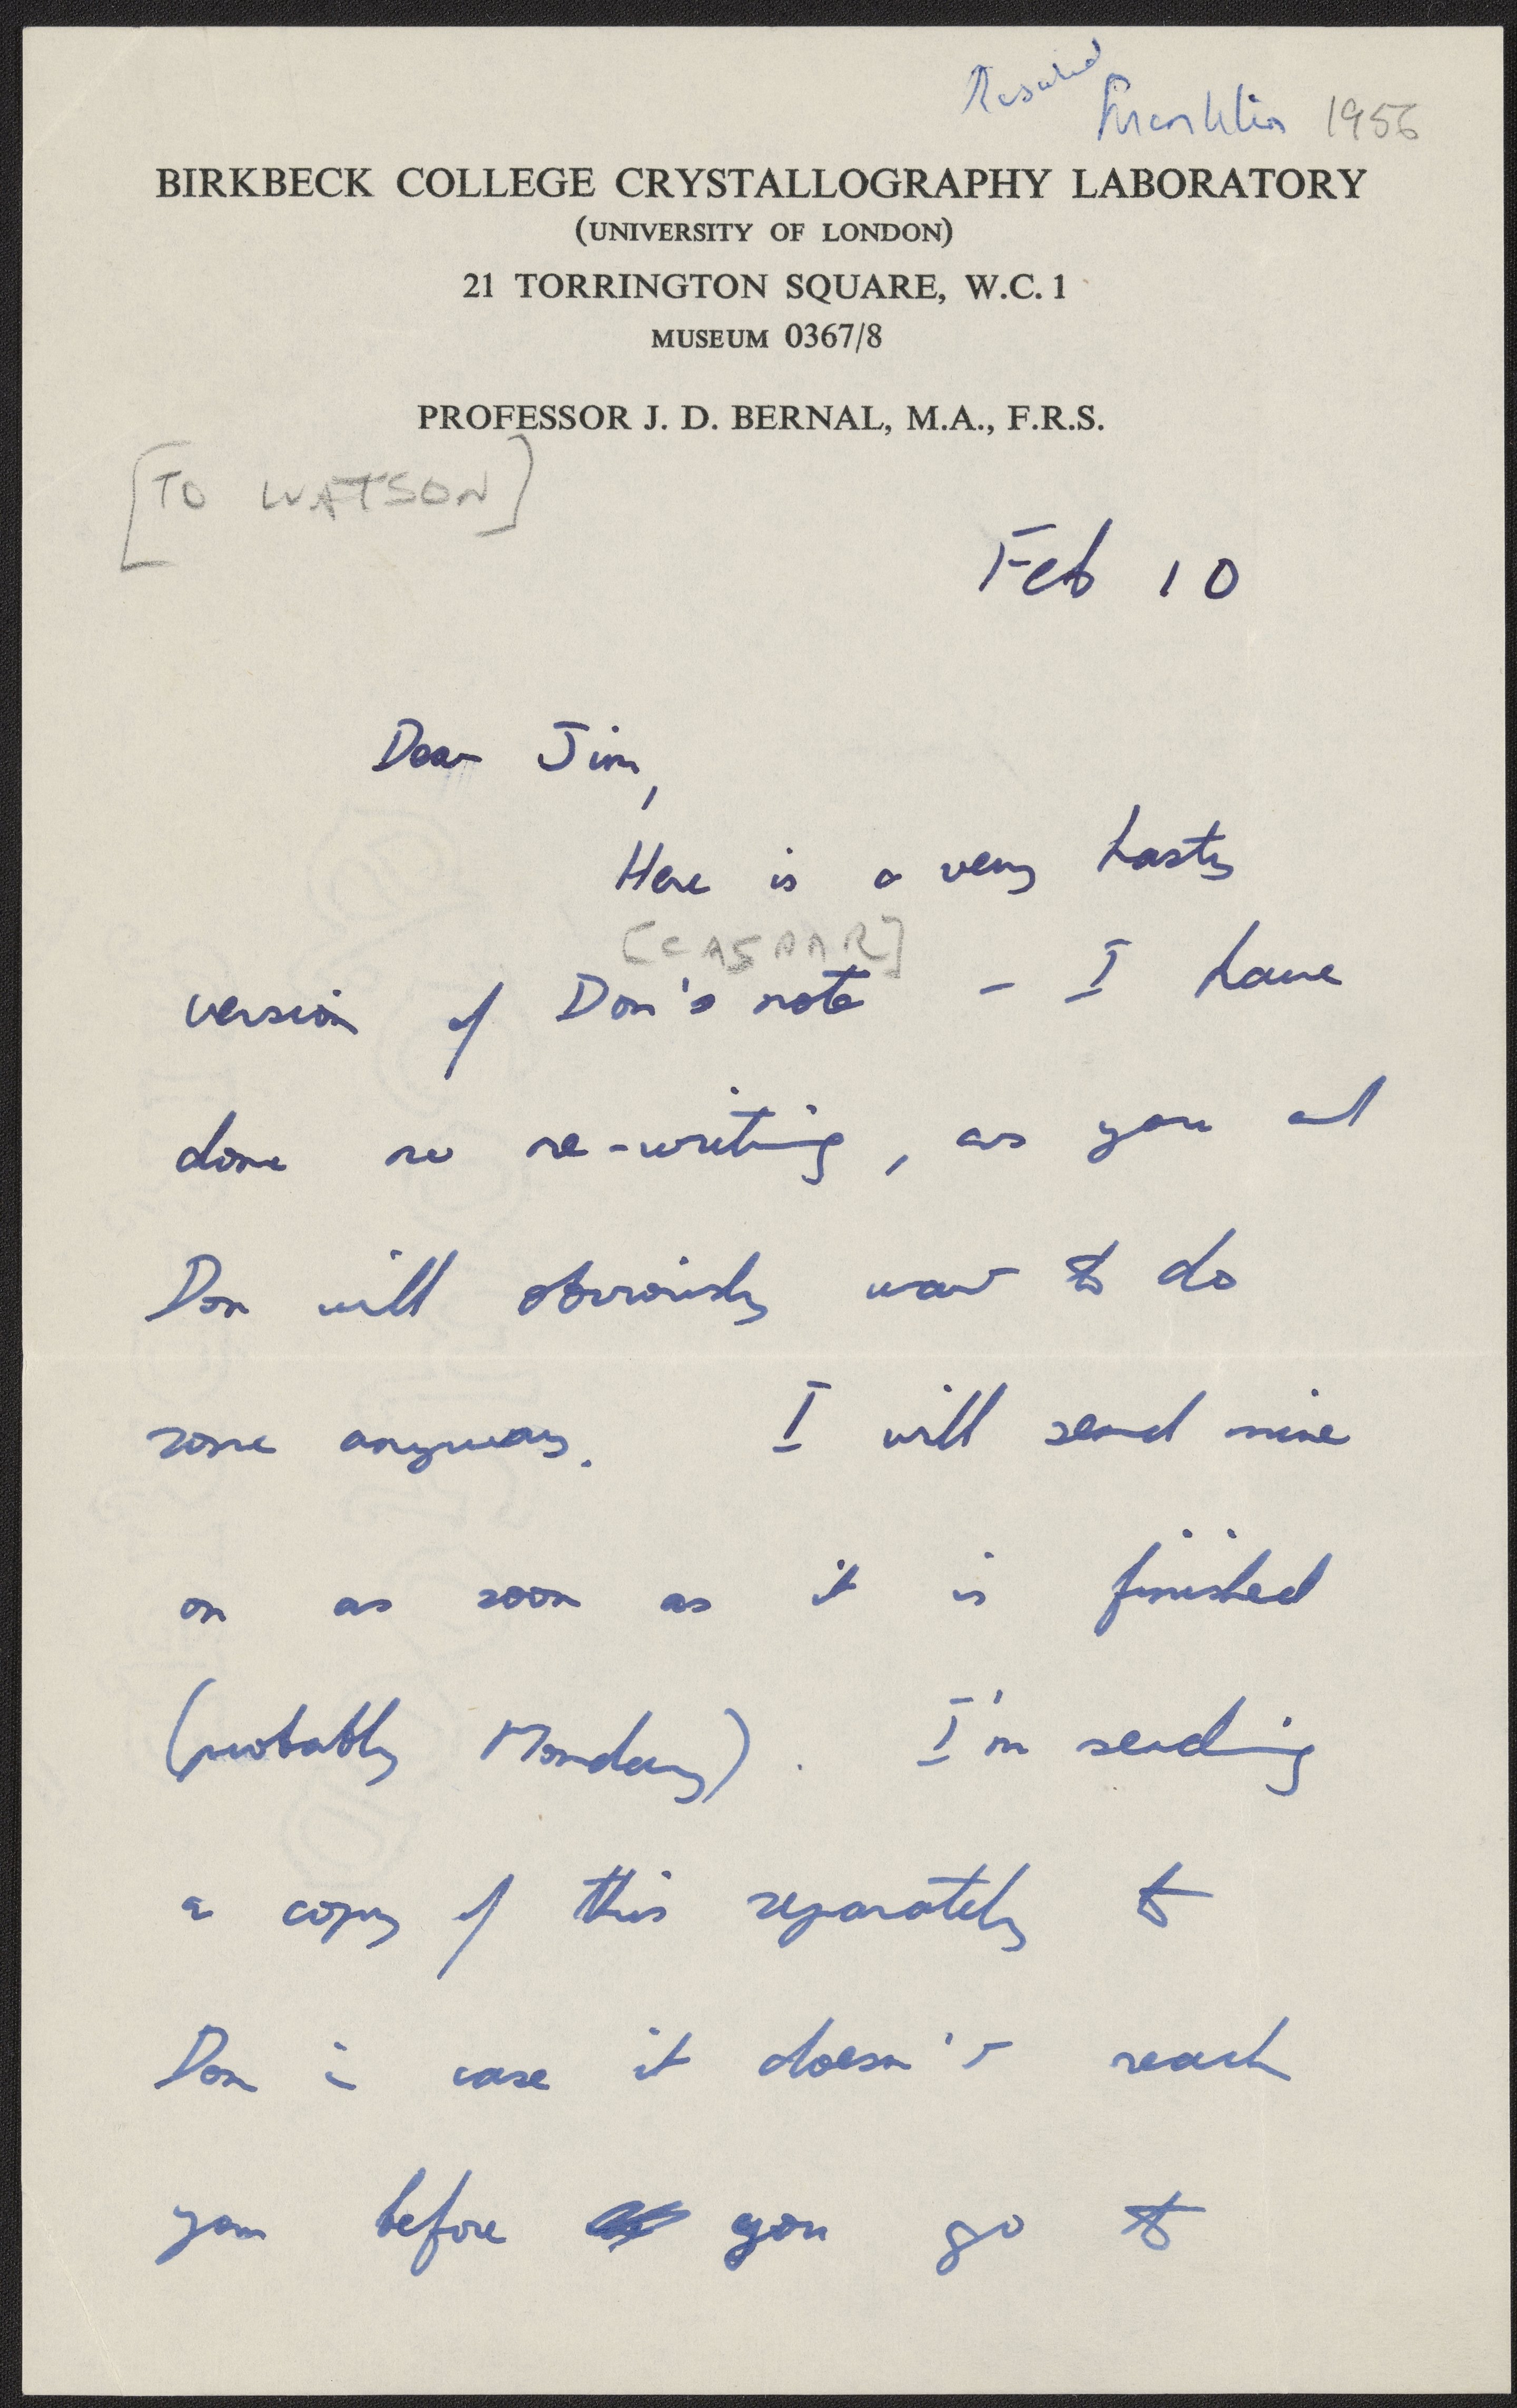 Rosalind
Franklin 1956
BIRKBECK COLLEGE CRYSTALLOGRAPHY LABORATORY
(UNIVERSITY OF LONDON)
21 TORRINGTON SQUARE, W.C.1
MUSEUM 0367/8
PROFESSOR J. D. BERNAL, M.A., F.R.S.
[TO WATSON]
Feb 10
Dear Jim,
Here is a very hasty
[CASPAR]
version of Don's note - I have
done no re-writing, as you and
Don will obviously want to do
some anyway. I will send mine
on as soon as it is finished
(probably Monday). I'm sending
a copy of this separately to
Don in case it doesn't reach
you before you go to